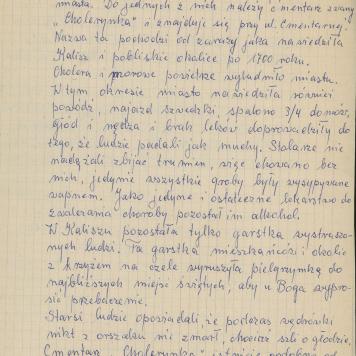 miasta. Do jednych z nich należy cmentarz zwany
"Cholerynka" i znajduje się przy ul. Cmentarnej.
Nazwa ta pochodzi od zarazy jaka nawiedziła
Kalisz i pobliskie okolice po 1700 roku.
Cholera i morowe powietrze wyludniło miasto.
W tym okresie miasto nawiedziła również
powódź, najazd szwedzki, spalono 3/4 domów,
głód i nędza i brak leków doprowadziły do
tego, że ludzie padali jak muchy. Stolarze nie
nadążali zbijać trumien, więc chowano bez
nich, jedynie wszystkie groby były wysypywane
wapnem. Jako jedyne i ostateczne lekarstwo do
zwalczania choroby pozostał im alkohol.
W Kaliszu pozostała tylko garstka wystraszo-
nych ludzi. Ta garstka mieszkańców i okolic
z krzyżem na czele wyruszyła pielgrzymką do
najbliższych miejsc świętych, aby u Boga wypro-
sić przebaczenie.
Starsi ludzie opowiadali, że podczas wędrówki
nikt z orszaku nie zmarł, chociaż szli o głodzie.
Cmentarz "Cholerynka" istnieje podobno od